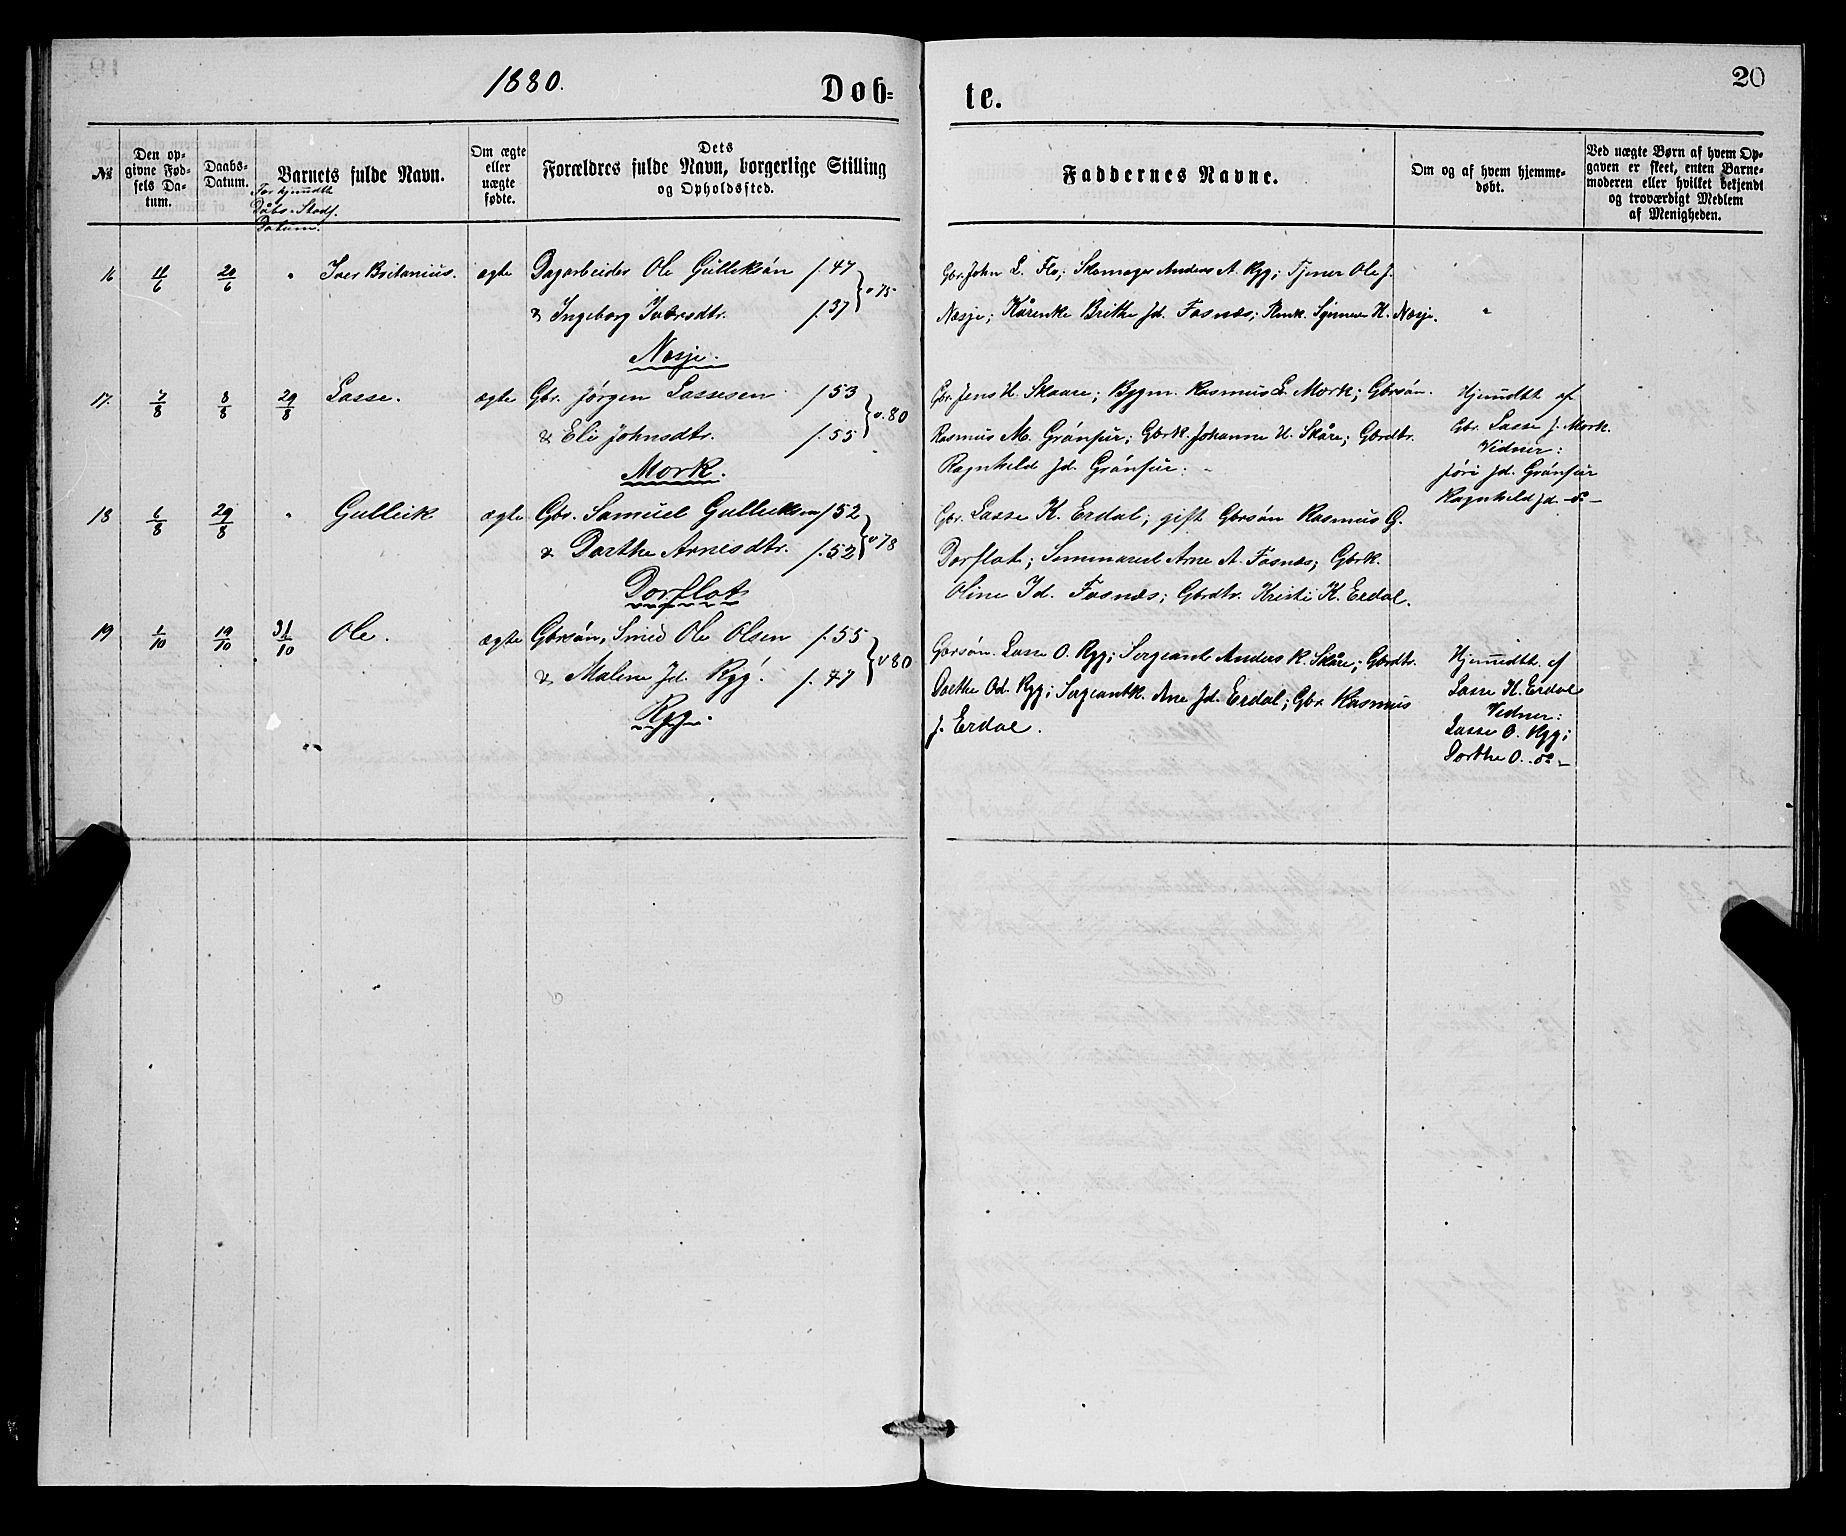 1880.
Døb=
te.
20
№
Den op-
givne Fød-
sels Da-
tum.
Daabs-
Datum.
Barnets fulde Navn.
For hjemdbt
Dåbs-Stadf.
Datum.
Om ægte
eller
uægte
fødte.
Dets
Forældres fulde Navn, borgerlige Stilling
og Opholdssted.
Faddernes Navne.
Om og af hvem hjemme-
døbt.
Ved uægte Børn af hvem Op-
gaven er skeet, enten Barne-
moderen eller hvilket bekjendt
og troværdigt Medlem
af Menigheden.
16 11/6 20/6 " Iver Britanius. ægte Dagarbeider Ole Gulleksøn f. 47
& Ingeborg Iversdtr. f. 37 } v 75
Nesje.
Gbr. John L. Flo; Skomager Anders A. Ryg; Tjener Ole J.
Nesje; Kårenke Brithe Jd. Fosnæs; Kmk. Synneve H. Nesje. "
17. 7/8 8/8 29/8 Lasse. ægte Gbr. Jørgen Lassesen f 53
& Eli Johnsdtr. f. 55 } v. 80
Mork.
Gbr. Jens H. Skaare; Bygm. Rasmus L. Mork; Gbrsøn.
Rasmus M. Grønfur; Gbrk. Johanne H. Skåre; Gbrdtr.
Ragnhild Jd. Grønfur.
Hjemdbt af
Gbr. Lasse J. Mork.
Vidner:
Jøri Jd. Grønfur
Ragnhild Jd. -do-
18 6/8 29/8 " Gulleik ægte Gbr. Samuel Gulleiksen f 52
& Dorthe Arnesdtr. f. 52 } v 78
Dorflot
Gbr. Lasse K. Erdal; gift Gbrsøn Rasmus G.
Dorflot; Seminarist Arne A. Fosnæs; Gbrk.
Oline Id. Fosnæs; Gbrdtr. Kristi K. Erdal.
19 1/10 19/10 31/10 Ole. ægte Gbrsøn, Smed Ole Olsen f. 55
& Malene Jd. Ryg. f. 47 } v 80
Ryg.
Gbrsøn. Lasse O. Ryg; Sergeant Anders R. Skåre; Gbrdtr.
Dorthe Od. Ryg; Sergeantk. Ane Jd. Erdal; Gbr Rasmus
J. Erdal.
Hjemdbt. af
Lasse K. Erdal
Vidner:
Lasse O. Ryg;
Dorthe O. -do-